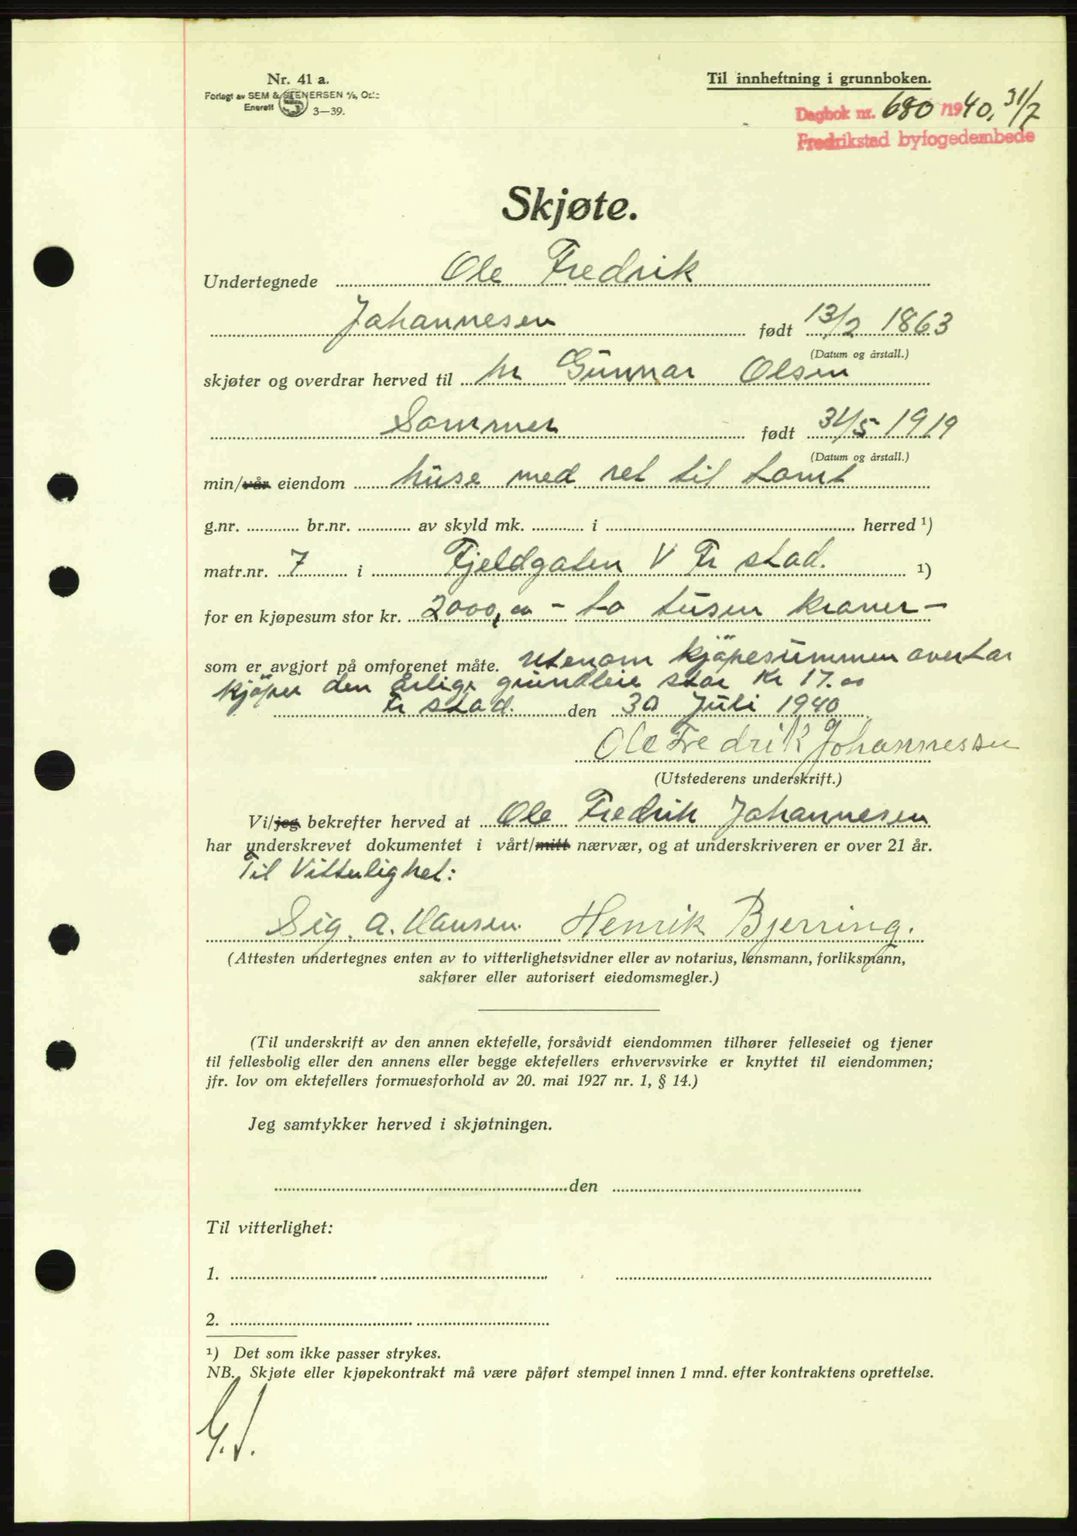 Nr. 41 a.
Forlagt av SEM & STENERSEN A/S, Oslo
Enerett 3—39.
Til innheftning i grunnboken.
Dagbok nr. 680 /1940, 31/7
Fredrikstad byfogedembede
Skjøte.
Undertegnede Ole Fredrik
Johannesen født 13/2 1863
(Datum og årstall.)
skjøter og overdrar herved til hr Gunnar Olsen
Sommer født 31/5 1919
(Datum og årstall.)
min/vår eiendom huse med ret til tomt
g.nr. ............ br.nr. ............ av skyld mk. ............ i ............ herred ¹)
matr.nr. 7 i Fjeldgaten V Fr stad. ¹)
for en kjøpesum stor kr. 2000,00 — to tusen kroner —
som er avgjort på omforenet måte. Utenom kjöpesummen overtar
kjöper den årlige grundleie stor kr 17.00
Fr stad. den 30 Juli 1940
Ole Fredrik Johannessen
(Utstederens underskrift.)
Vi/jeg bekrefter herved at Ole Fredrik Johannesen
har underskrevet dokumentet i vårt/mitt nærvær, og at underskriveren er over 21 år.
Til Vitterlighet:
Sig. A. Hansen. Henrik Bjerring.
(Attesten undertegnes enten av to vitterlighetsvidner eller av notarius, lensmann, forliksmann,
sakfører eller autorisert eiedomsmegler.)
(Til underskrift av den annen ektefelle, forsåvidt eiendommen tilhører felleseiet og tjener
til fellesbolig eller den annens eller begge ektefellers erhvervsvirke er knyttet til eiendommen;
jfr. lov om ektefellers formuesforhold av 20. mai 1927 nr. 1, § 14.)
Jeg samtykker herved i skjøtningen.
............ den ............
Til vitterlighet:
1. ............
2. ............
¹) Det som ikke passer strykes.
NB. Skjøte eller kjøpekontrakt må være påført stempel innen 1 mnd. efter kontraktens oprettelse.